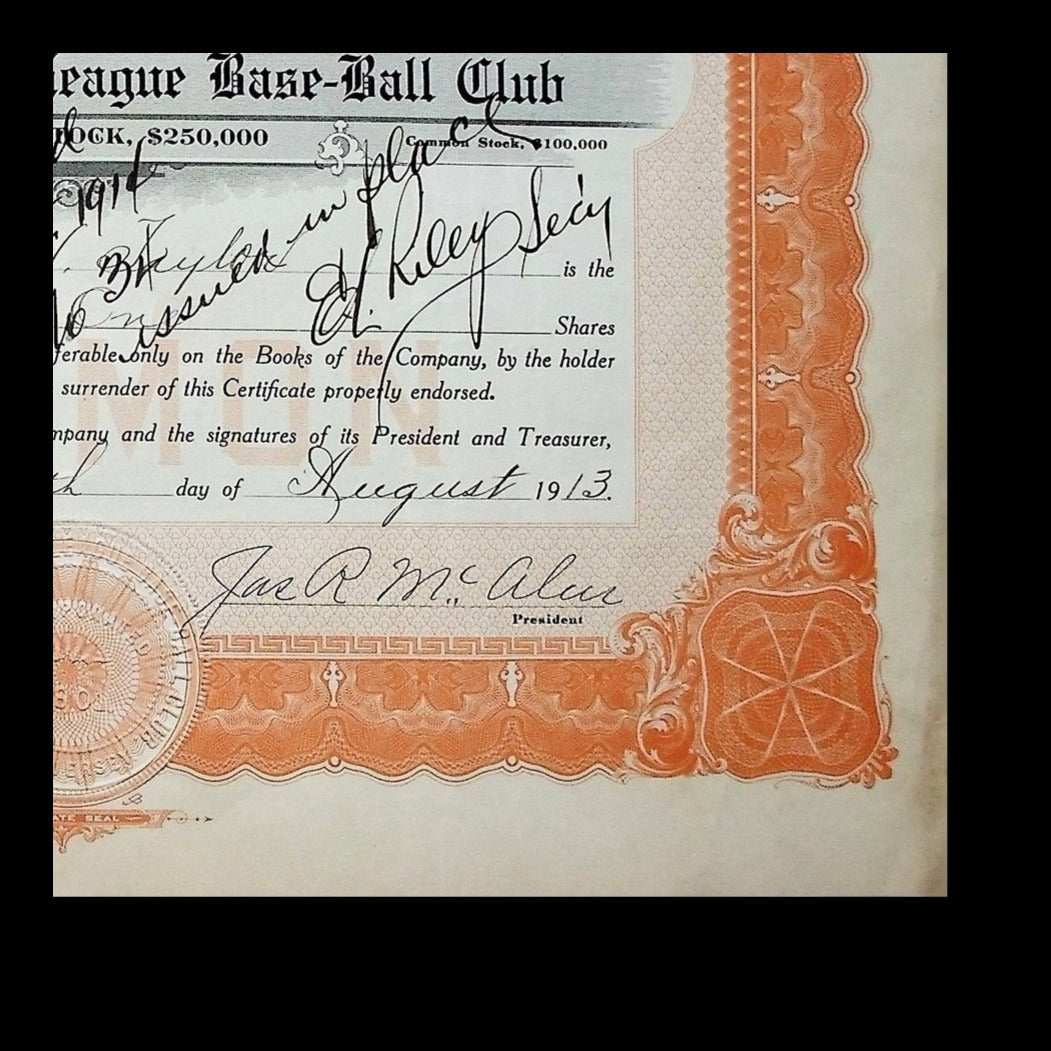 eague Base-Ball Club
OCK, $250,000 Common Stock, $100,000
1914
issued in place
E. Riley Sec'y
is the
Shares
ferable only on the Books of the Company, by the holder
surrender of this Certificate properly endorsed.
mpany and the signatures of its President and Treasurer,
th day of August 1913.
Jas R McAleer
President
CLUB
ATE SEAL